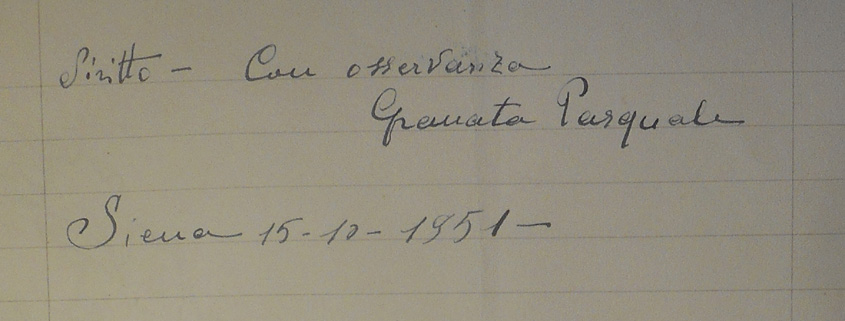 diritto - Con osservanza
Granata Pasquale
Siena 15-10-1951-